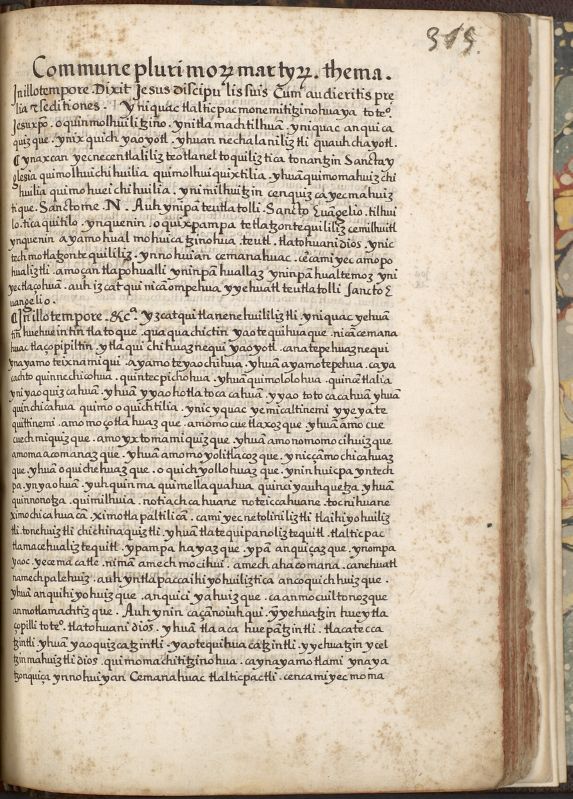 315.
Commune plurimoꝝ martyꝝ. thema.
In illo tempore. Dixit Jesus discipulis suis Cum audieritis pre
lia et seditiones. Yniquac tlalticpac monemititzinohuaya toteo.
Jesu xpo. oquinmolhuili tzino. yn itlamachtilhuā. yniquac anquica
quizque. yn ixquich yaoyotl. yhuan nechalaniliztli quauhchayotl.
Cynaxcan yecnecentlaliliz teotlanel toquiliz tica tonantzin Sancta y
glesia quimolhuichihuilia quimolhuiquixtilia. yhuā quimomahuizchi
huilia quimohueichihuilia. yn imilhuitzin cenquizca yecmahuiz
tique. Sanctome. N. Auh ynī pa teutlatolli. Sancto Euāgelio. tilhui
lo. tica quitilo. yn quenin. oquixpampa tetlatzontequililiz cemilhuitl
yn quenin ayamo hual mohuicatzinohua. teutl. tlatohuani dios. ynic
techmotlatzontequililiz. ynnohuian cemanahuac. cēca miyec amopo
hualiztli. amoçan tlapohualli yn inpan huallaz yn inpan hualtemoz yni
yectlaçohua. auh iz catqui nicā ompehua yyehuatl teutlatolli Sancto E
uangelio.
Cin illo tempore. &c. Yz catqui tlanenehuililiztli. yniquac yehuā
tin huehueintin tlatoque. quaquachictin yaotequihuaque. nicā cemana
huac tlaçopipiltin. ytla quichihuaznequi yaoyotl. canatepehuaznequi
ynayamo teixnamiqui. ayamo teyaochihua. yhuā ayamo tepehua. ca ya
cachto quinnechicohua. quintecpichohua. yhuā quimololohua. quincētlalia
yn iyaoquizcahuā. yhuā yyaohotlatocacahuā. yyaototocacahuā yhuā
quinchicahua quimoquichtilia. ynic yquac yemicaltinemi yyeyate
quittinemi. amo moçotlahuazque. amo mocuetlaxozque yhuā amo cue
cuechmiquizque. amo yxtomamiquizque. yhuā amo nomomocihuizque
amomaacomanazque. yhuā amo moyolitlacozque. yniccāmochicahuaz
que. yhuā oquichehuazque. oquichyollohuazque. ynin huicpa yntech
pa. yn yaohuā. yuhquinma quimellaquahua quinciyauhquetza. yhuā
quinnonotza. quimilhuia. notiachcahuane noteiccahuane. tocnihuane
ximochicahuacā. ximotlapaltilicā. ca miyec netoliniliztli tlaihiyohuiliz
tli. tonehuiztli chichinaquiztli. yhuā tlatequipanoliztequitl. tlalticpac
tlamacehualiztequitl. ypampa hayazque. ypā anquiçazque. ynompa
yaoc. yecemacatle. nimā amechmocihui. amechahacomana. canehuatl
namechpalehuiz. auh yntlapaccaihiyohuiliztica ancoquichhuizque.
yhuā anquihiyohuizque. anquiciyahuizque. ca anmocuiltonozque
anmotlamachtizque. Auh ynin caçanoiuhqui. yyehuatzin huey tla
çopilli toteo. tlatohuani dios. yhuā tlaaca huepātzintli. tlacatecca
tzintli. yhuā yaoquizcatzintli. yaotequihuacatzintli. yychuatzin ycel
tzin mahuiztli dios. quimomachititzinohua. caynayamo tlami ynaya
tzonquiça ynnohuiyan Cemanahuac tlalticpactli. cenca miyec moma